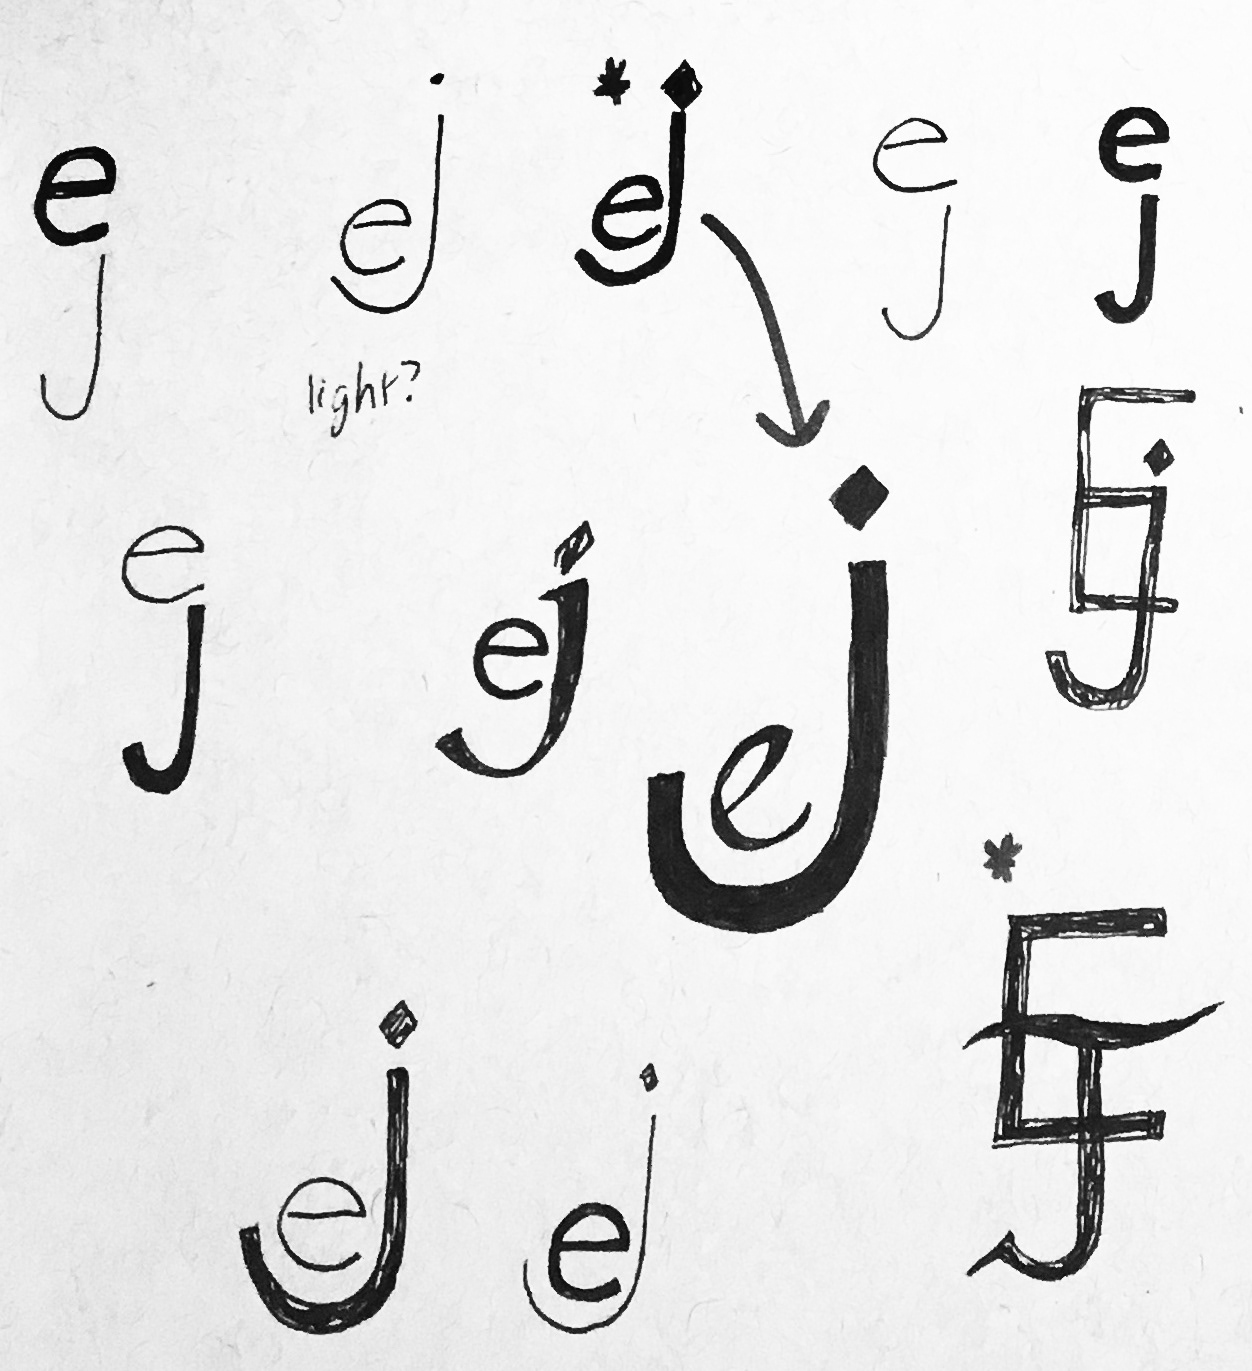 ej
ej
* ej
ej
ej
light?
Ej
ej
ej
ej
* EJ
ej
ej